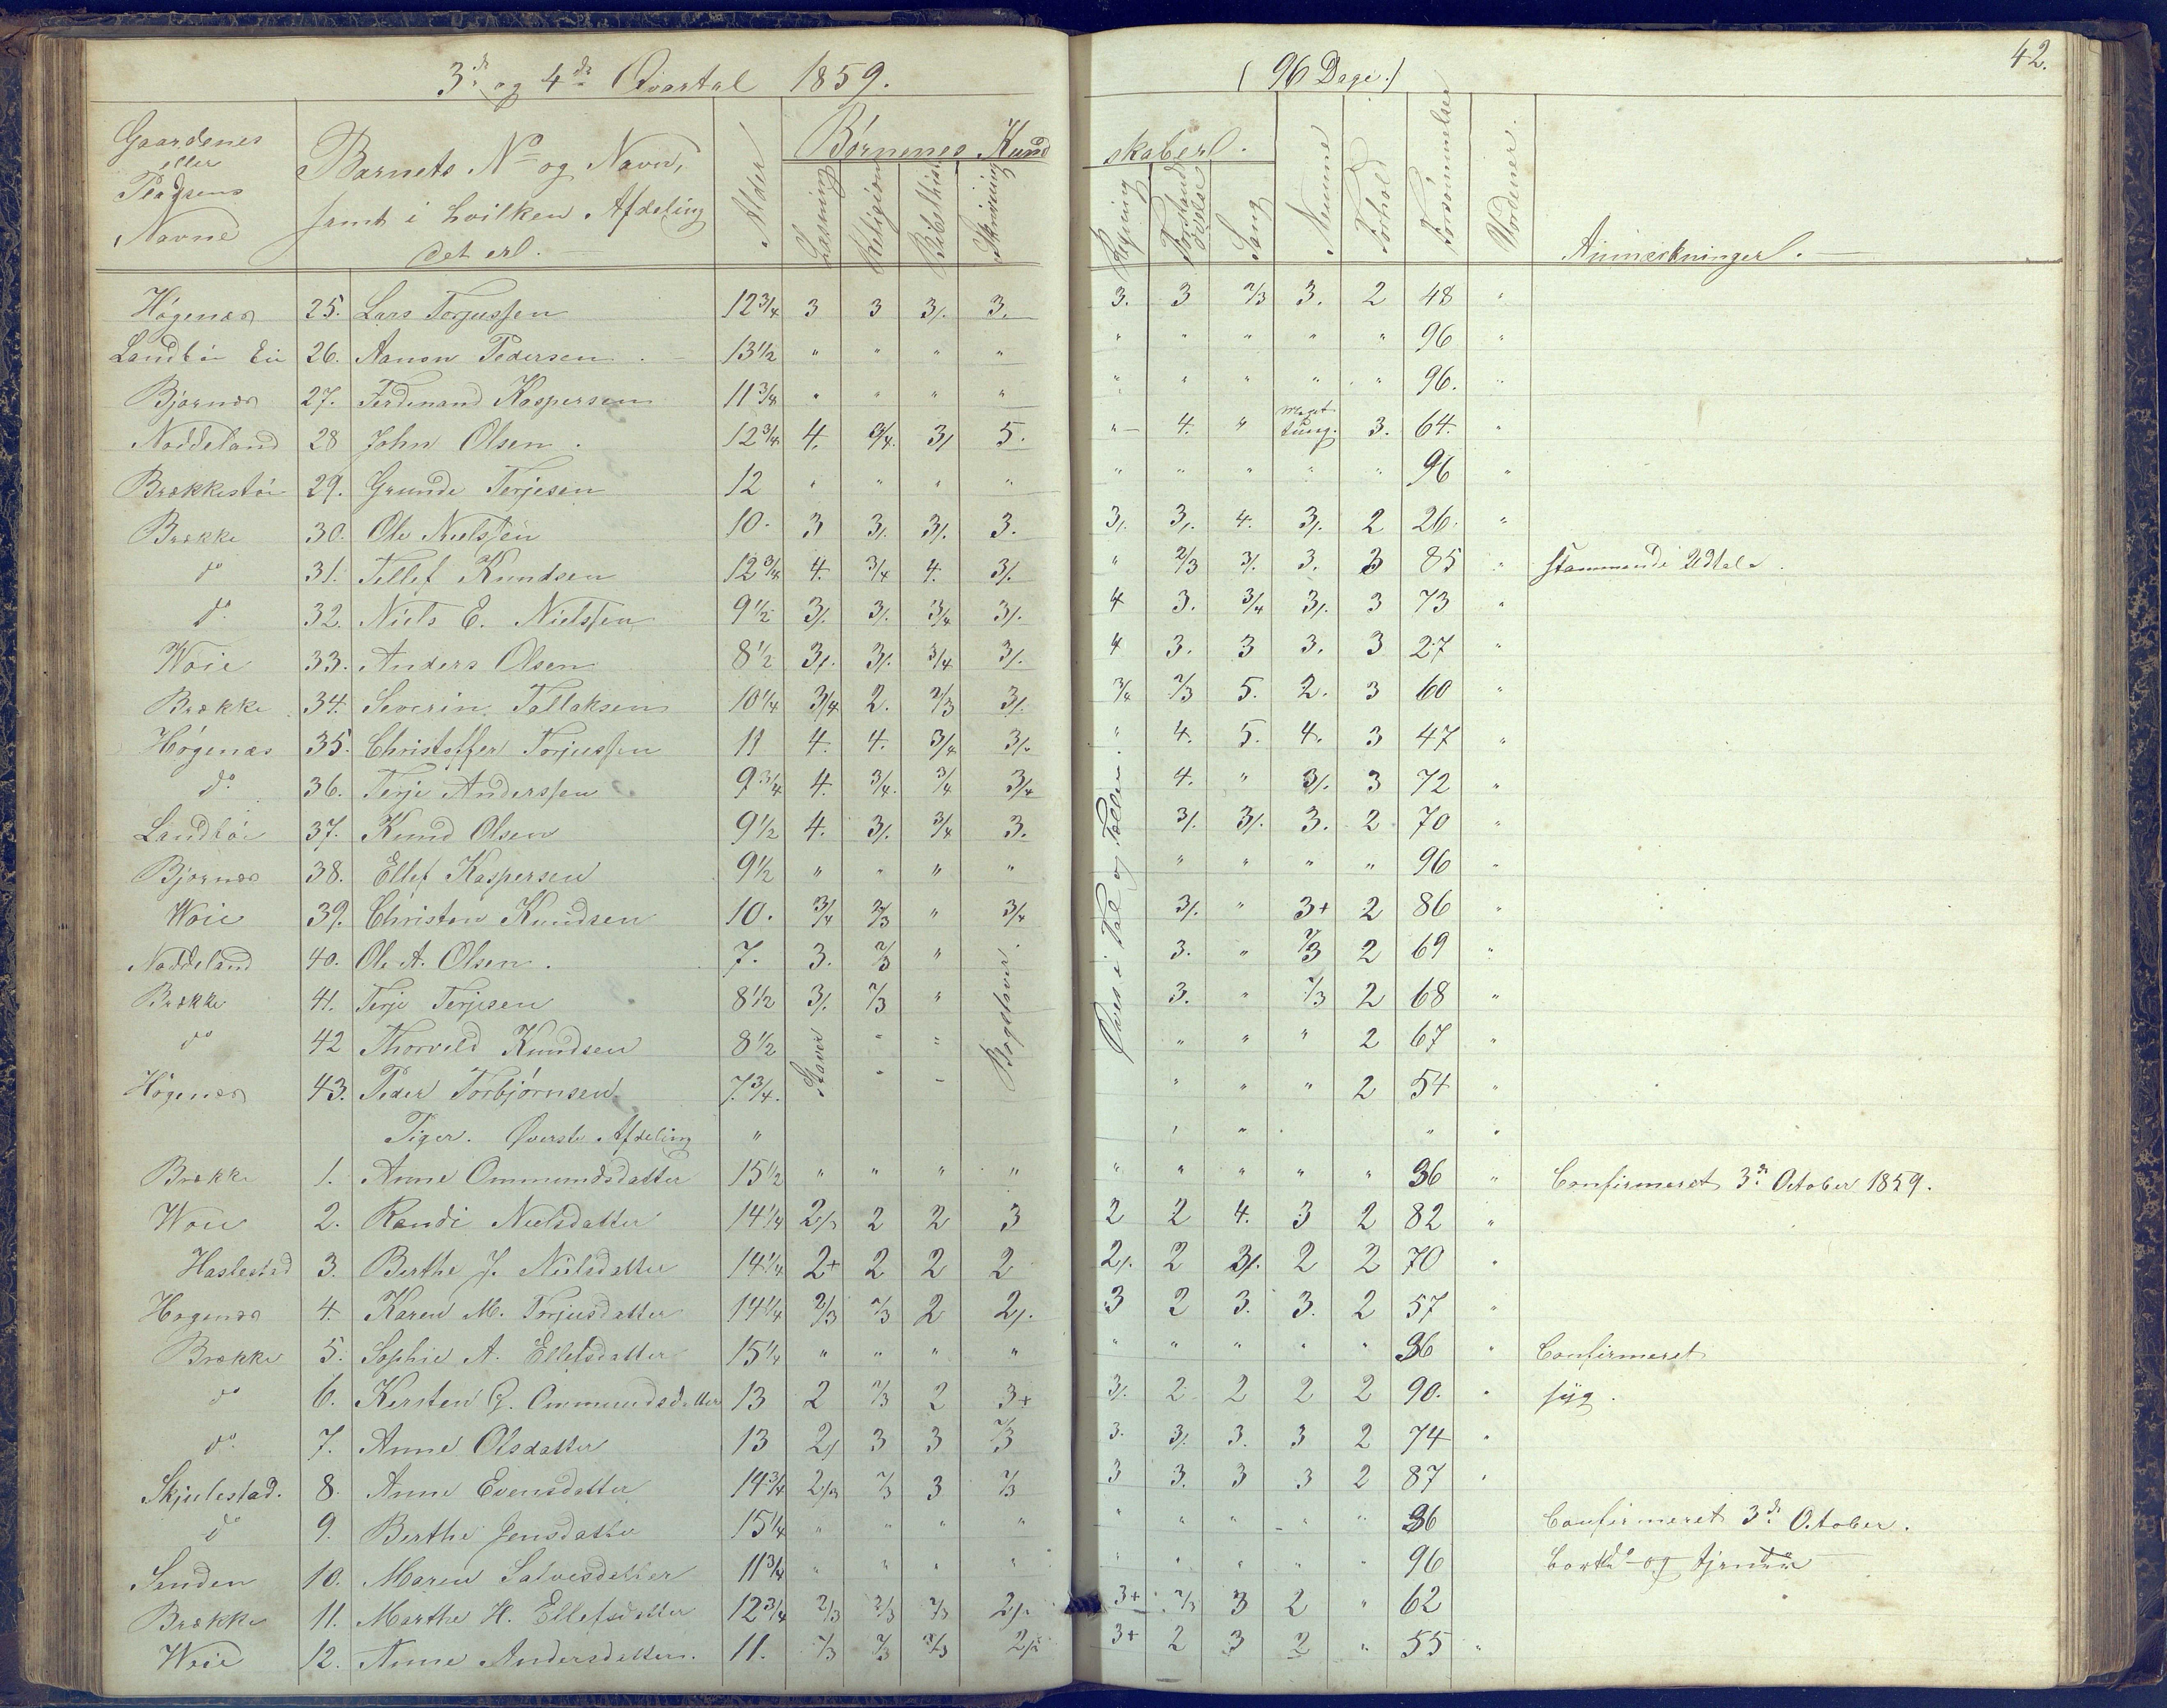 3de og 4de Qvartal 1859. (96 Dage.) 42.
Gaardenes eller Pladsens Navne | Barnets No og Navn, samt i hvilken Afdeling det er. | Alder | Børnenes Kundskaber. | Læsning | Religion | Bibelhist. | Skrivning | Regning | Forstands øvelse | Sang | Nemme | Forhold | Forsømmelser | Vordener. | Anmærkninger.
Høgenæs 25. Lars Torjussen 12 3/4 3 3 3/. 3. 3. 3 2/3 3. 2 48 "
Landbøe Eie 26. Aanon Pedersen. 13 1/2 " " " " " " " " " 96 "
Bjørnæs 27. Ferdinand Kaspersen 11 3/4 " " " " " " " " " 96. "
Noddeland 28 John Olsen. 12 3/4 4. 3/4. 3/ 5. " 4. " meget tung. 3. 64. "
Brækkestøe 29. Grunde Terjesen 12 " " " " " " " " " 96 "
Brække 30. Ole Nielssen 10. 3 3/. 3/. 3. 3/. 3/. 4. 3/. 2 26. "
do 31. Tellef Knudsen 12 3/4 4. 3/4 4. 3/. " 2/3 3/. 3. 3 85 " stammende Udtale.
do 32. Niels E. Nielssen 9 1/2 3/. 3/. 3/4 3/. 4 3. 3/4 3/. 3 73 "
Woie 33. Anders Olsen 8 1/2 3/. 3/. 3/4 3/. 4 3. 3 3. 3 27 "
Brække 34. Severin Tallaksen 10 1/4 3/4 2. 2/3 3/. 3/4 2/3 5. 2. 3 60 "
Høgenæs 35. Christoffer Torjussen 11 4. 4. 3/4 3/. " 4. 5. 4. 3 47 "
do 36. Terje Anderssen 9 3/4 4. 3/4. 3/4 3/4 4. " 3/. 3 72 "
Landbøe 37. Knud Olsen 9 1/2 4. 3/. 3/4 3. 3/. 3/. 3. 2 70 "
Bjørnæs 38. Ellef Kaspersen 9 1/2 " " " " " " " " 96 "
Woie 39. Christen Knudsen 10. 3/4 2/3 " 3/4 3/. " 3+ 2 86 "
Noddeland 40. Ole A. Olsen. 7. 3. 2/3 " 3. " 2/3 2 69 "
Brække 41. Terje Terjesen 8 1/2 3/. 2/3 " 3. " 2/3 2 68 "
do 42 Thorvild Knudsen 8 1/2 " " " " " 2 67 "
Høgenæs 43. Peder Torbjørnsen 7 3/4. " " " " " 2 54 "
Staver
Bogstaver.
Øves i Tal og Tællen.
Piger. Øverste Afdeling " " " " "
Brække 1. Anne Ommundsdatter 15 1/2 " " " " " " " " " 36 " Confirmeret 3de October 1859.
Woie 2. Randi Nielsdatter 14 1/4 2/3 2 2 3 2 2 4. 3 2 82 "
Haslestad 3. Berthe J. Nielsdatter 14 1/4 2+ 2 2 2 2/. 2 3/. 2 2 70 "
Høgenæs 4. Karen M. Torjusdatter 14 1/4 2/3 2/3 2 2/. 3 2 3. 3. 2 57 "
Brække 5. Sophie A. Ellefsdatter 15 1/4 " " " " " " " " " 36 " Confirmeret
do 6. Kersten G. Ommundsdatter 13 2 2/3 2 3+ 3/. 2 2 2 2 90. " syg.
do 7. Anne Olsdatter 13 2/ 3 3 2/3 3. 3/. 3. 3 2 74 "
Skjulestad. 8. Anne Evensdatter 14 3/4 2/3 2/3 3 2/3 3 3. 3 3 2 87 "
do 9. Berthe Jensdatter 15 1/4 " " " " " " " " " 36 Confirmeret 3de October.
Senden 10. Maren Salvesdatter 11 3/4 " " " " " " " " " 96
Brække 11. Marthe H. Ellefsdatter 12 3/4 2/3 2/3 2/3 2/. 3+ 2/3 3 2 " 62
Woie 12. Anne Andersdatter. 11. 2/3 2/3 2/3 2/. 3+ 2 3 2 " 55 "